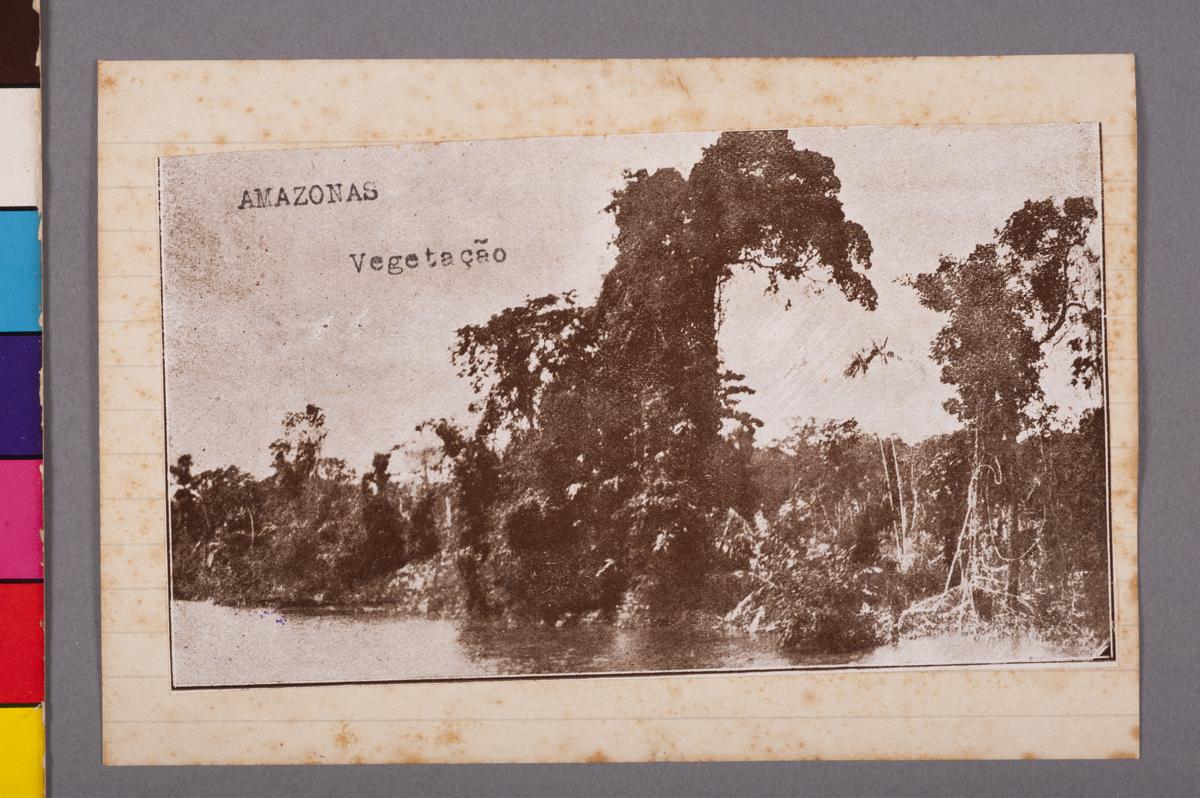 AMAZONAS
Vegetação